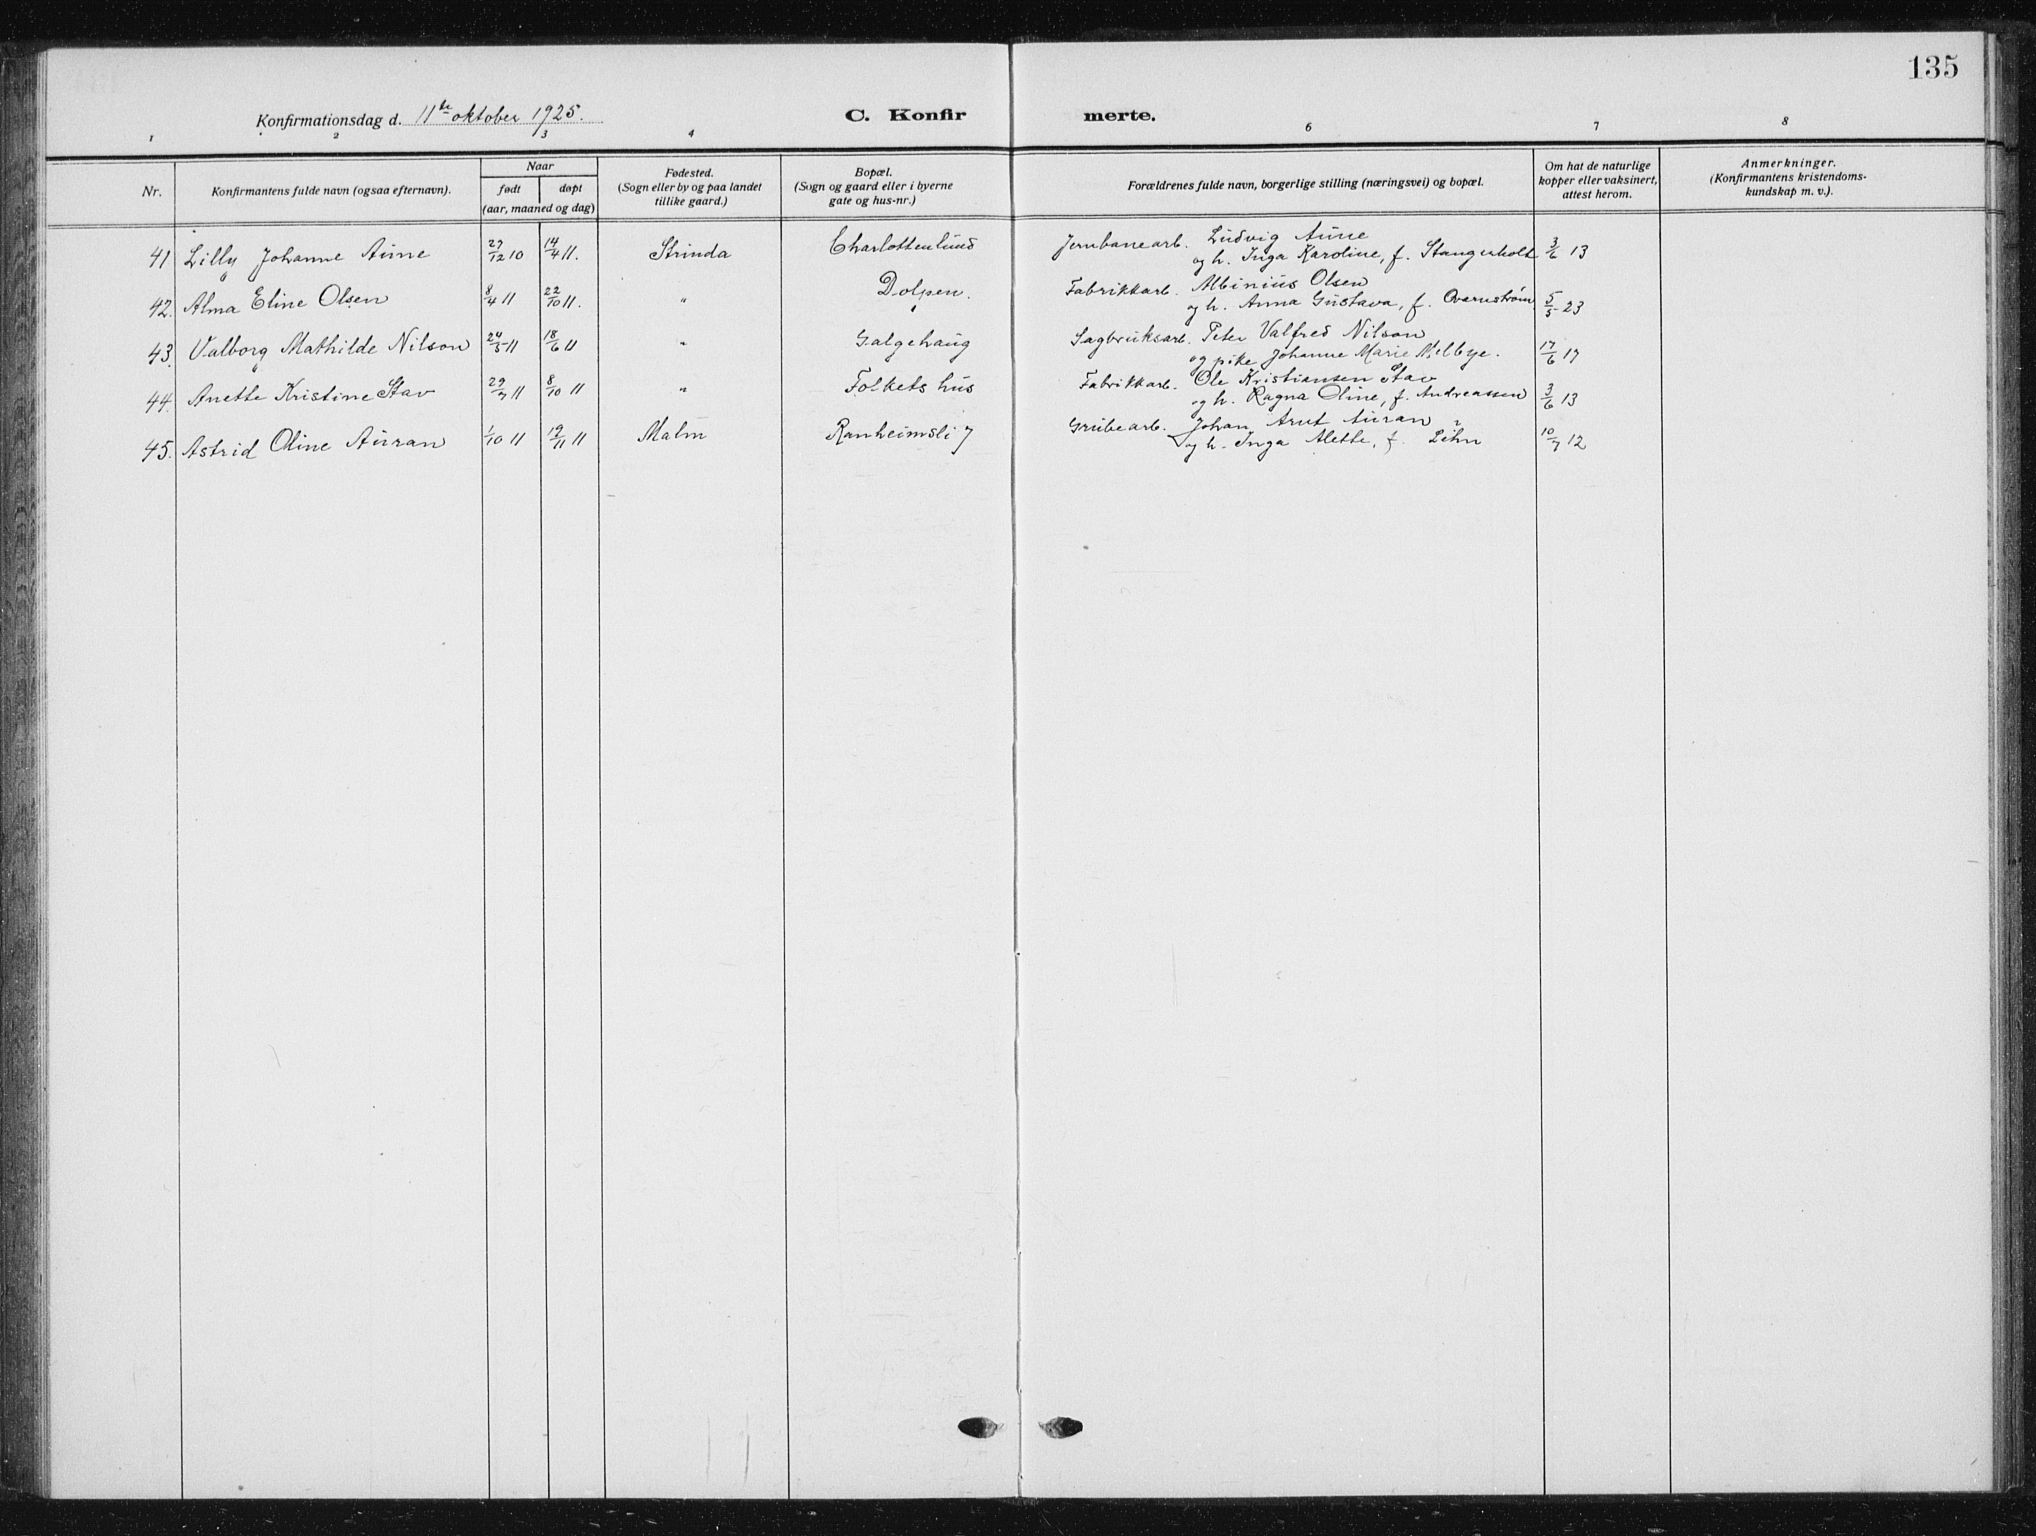 135
Konfirmationsdag d. 11te oktober 1925.
C. Konfirmerte.
1 2 3 4 6 7 8
Nr.
Konfirmantens fulde navn (ogsaa efternavn).
Naar
født døpt
(aar, maaned og dag)
Fødested.
(Sogn eller by og paa landet
tillike gaard.)
Bopæl.
(Sogn og gaard eller i byerne
gate og hus-nr.)
Forældrenes fulde navn, borgerlige stilling (næringsvei) og bopæl.
Om hat de naturlige
kopper eller vaksinert,
attest herom.
Anmerkninger.
(Konfirmantens kristendoms-
kundskap m. v.).
41 Lilly Johanne Aune 29/12 10 14/4 11. Strinda Charlottenlund Jernbanearb. Ludvig Aune
og h. Inga Karoline, f. Stangerholt 3/6 13
42. Alma Eline Olsen 8/4 11 22/10 11. " Dolpen. Fabrikkarb. Albinius Olsen
og h. Anna Gustava, f. Qvarnstrøm 5/5 23
43. Valborg Mathilde Nilson 24/5 11 18/6 11 " Galgehaug Sagbruksarb. Peter Valfred Nilson
og pike Johanne Marie Melbye. 17/6 17
44. Anette Kristine Stav 29/7 11 8/10 11 " Folkets hus Fabrikkarb. Ole Kristiansen Stav
og h. Ragna Oline, f. Andreassen 3/6 13
45. Astrid Oline Auran 1/10 11 19/11 11 Malm Ranheimsli 7 Grubearb. Johan Arnt Auran
og h. Inga Alette, f. Lühn 10/7 12